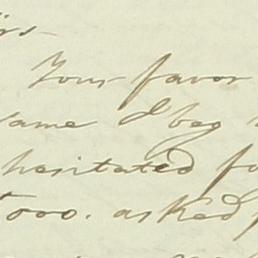 Your favor
same I beg
hesitated fo
000. asked f